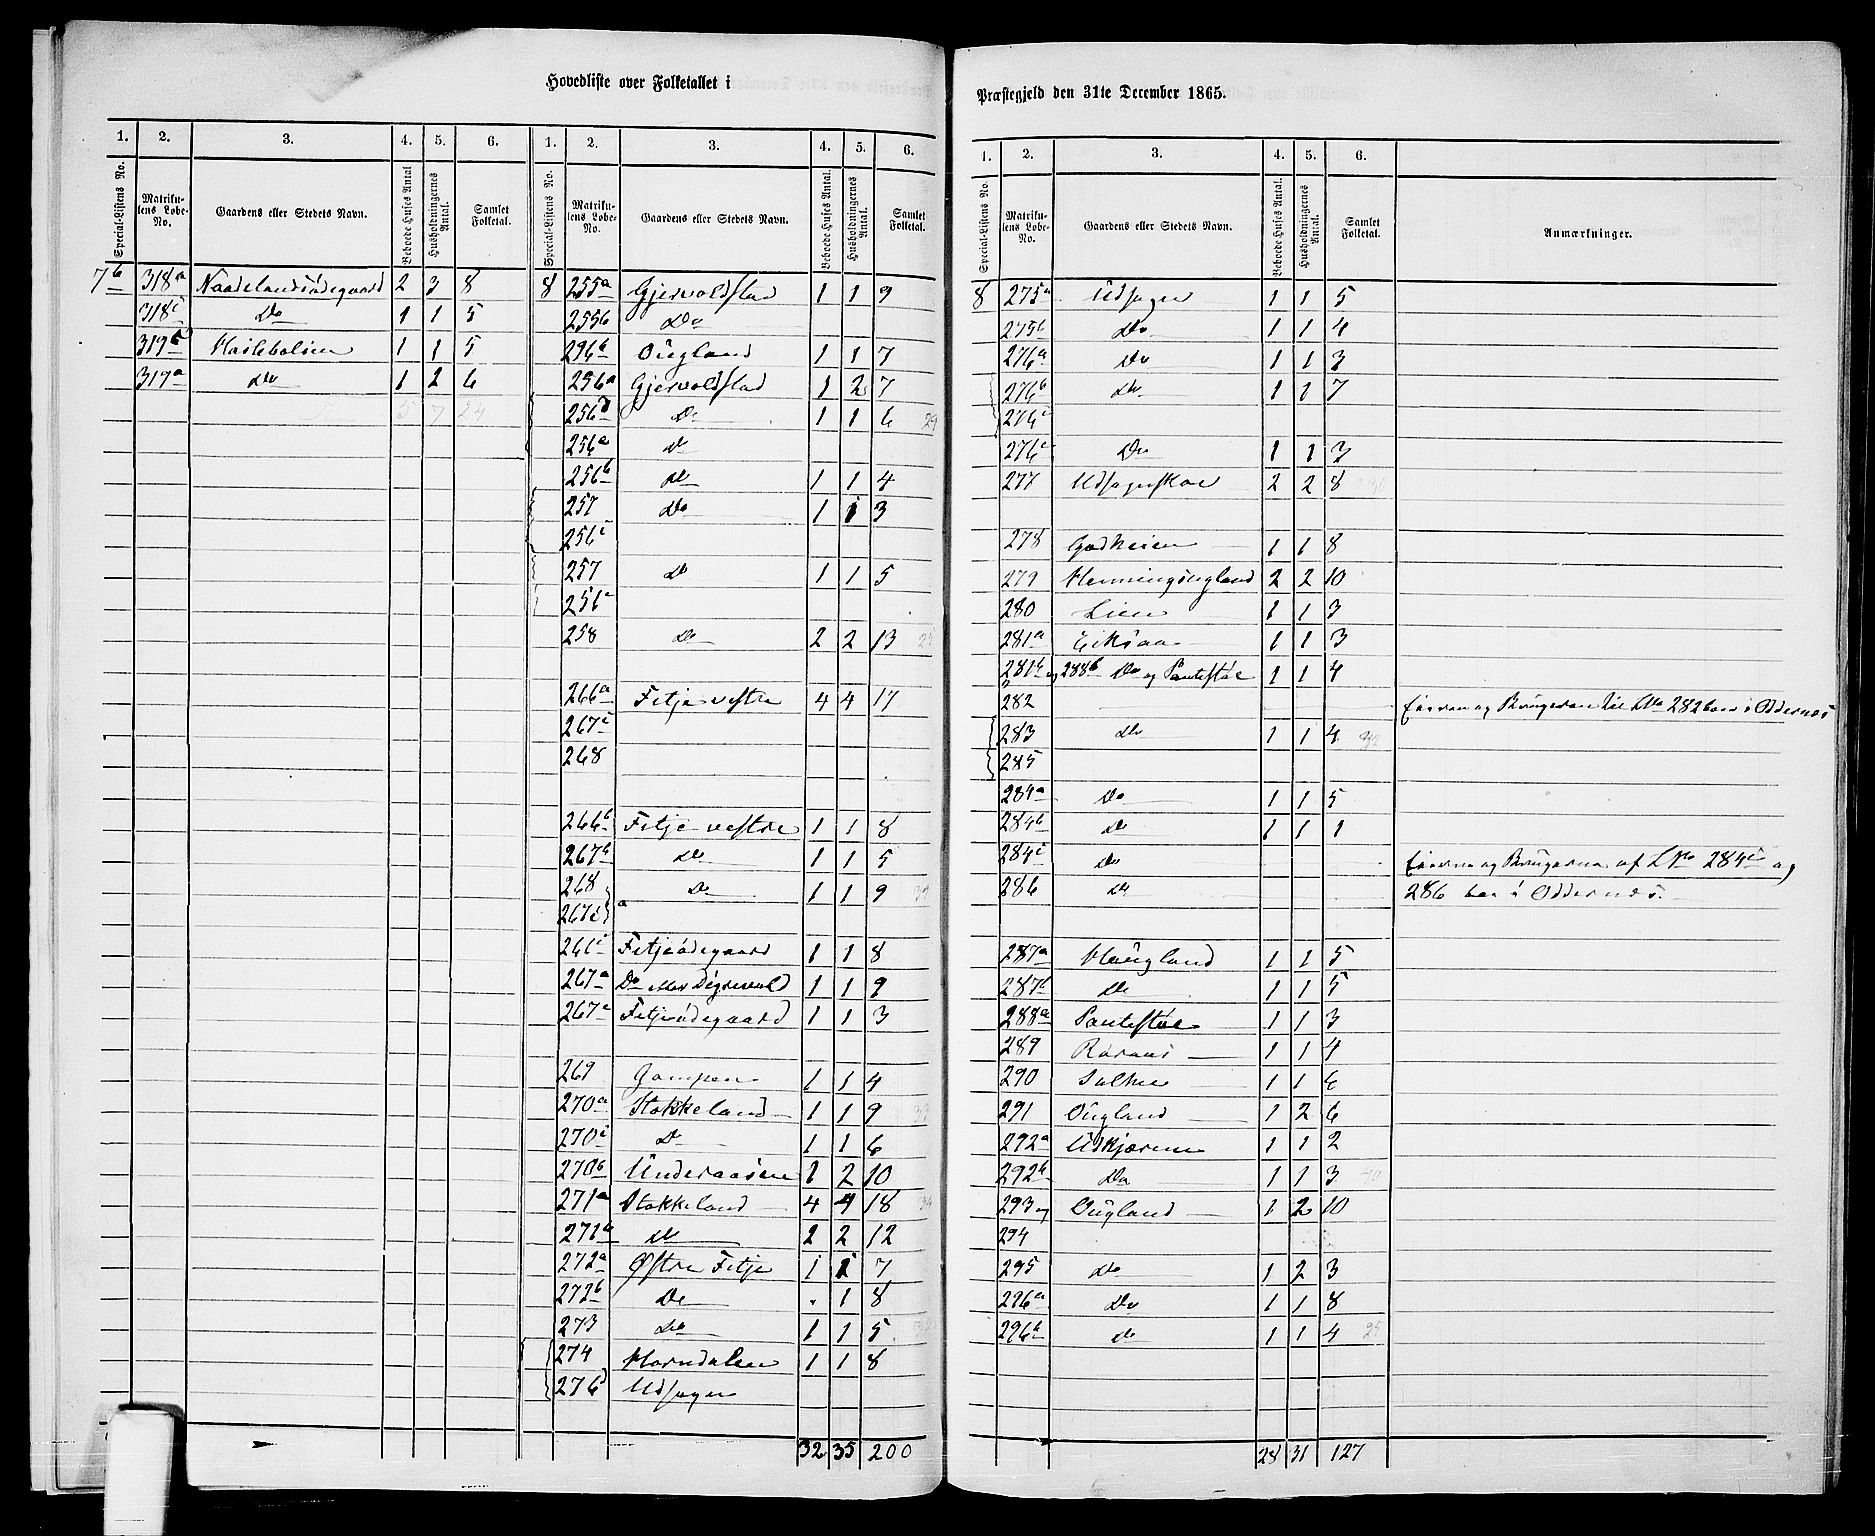 Hovedliste over Folketallet i
1. 2. 3. 4. 5. 6. 1. 2. 3. 4. 5. 6.
Special-Listens No. Matrikulens Løbe-No. Gaardens eller Stedets Navn. Beboede Huses Antal Husholdningernes Antal. Samlet Folketal. Special-Listens No. Matrikulens Løbe-No. Gaardens eller Stedets Navn. Beboede Huses Antal. Husholdningernes Antal. Samlet Folketal.
7b 318a Naadelandsødegaard 2 3 8
318c Do 1 1 5
319b Haileholien 1 1 5
319a Do 1 2 6
5 7 24
8 255a Gjervoldstad 1 1 9
255b Do
296b Øugland 1 1 7
256a Gjervoldstad 1 2 7
256d Do 1 1 6 29
256a Do
256b Do 1 1 4
257 Do 1 1 3
256c
257 Do 1 1 5
256c
258 Do 2 2 13
266a Fitje vestre 4 4 17
267c
268
266b Fitje vestre 1 1 8
267b Do 1 1 5
268 Do 1 1 9
267d
266c Fitjeødegaard 1 1 8
267a Do 1 1 9
267c Fitjeødegaard 1 1 3
269 1 1 4
270a Stokkeland 1 1 9
270c Do 1 1 6
270b Underaasen 1 2 10
271a Stokkeland 4 4 18
271a Do 2 2 12
272a Østre Fitje 1 1 7
272b Do . 1 8
273 Do 1 1 5
274 Horndalen 1 1 8
276d Udsagen
32 35 200
Præstegjeld den 31te December 1865.
1. 2. 3. 4. 5. 6.
Special-Listens No. Matrikulens Løbe-No. Gaardens eller Stedets Navn. Beboede Huses Antal. Husholdningernes Antal. Samlet Folketal. Anmærkninger.
8 275a Udsagen 1 1 5
275b Do 1 1 4
276a Do 1 1 3
276b Do 1 1 7
276c
276c Do 1 1 3
277 2 2 8
278 Godheien 1 1 8
279 Henningsugland 2 2 10
280 Lien 1 1 3
281a Eiksaa 1 1 3
281b og 288b Do og Pantestøl 1 1 4
282 Eieren og Brugeren til LNo 282 boer i Oddernæs
283 Do 1 1 4
285
284a Do 1 1 5
284b Do 1 1 1
284c Do Eierne og Brugerne af LNo 284c og
286 Do 286 boe i Oddernæs.
287a Haugland 1 1 5
287b Do 1 1 5
288a Pantestøl 1 1 3
289 Røraas 1 1 4
290 1 1 6
291 Øugland 1 2 6
292a Udkjæren 1 1 2
292b Do 1 1 3
293 og Øugland 1 2 10
294
295 Do 1 2 3
296a Do 1 1 8
296b Do 1 1 4 25
28 31 127